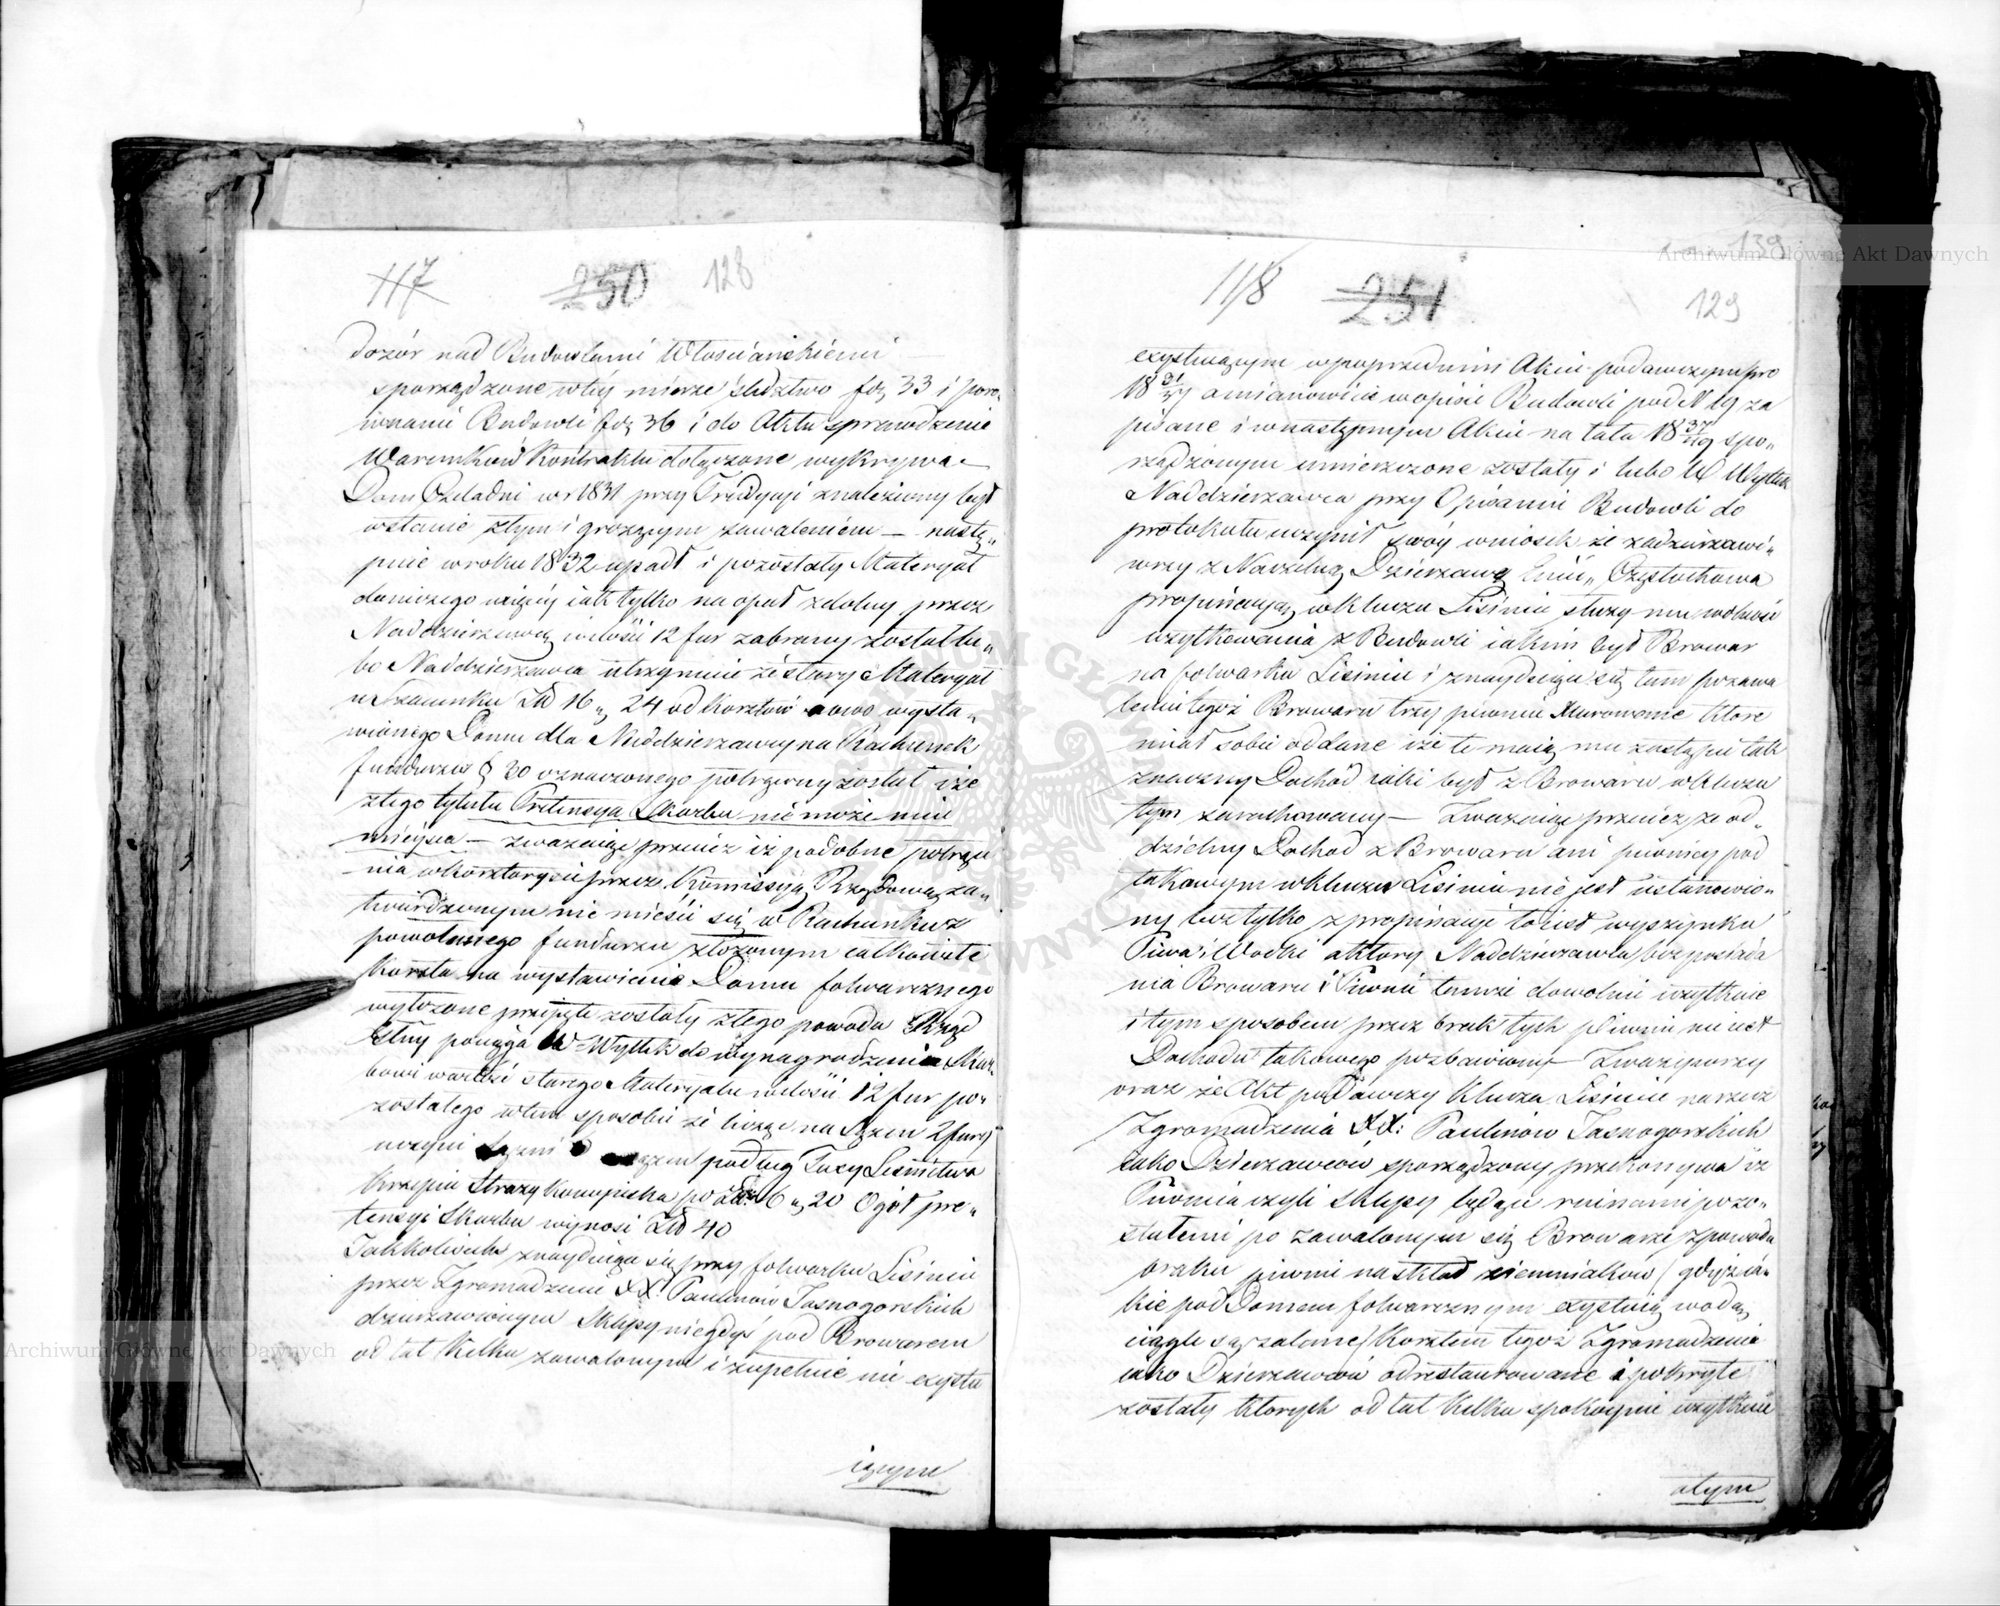 117 250 128
dozór nad Budowlami Włościańskiemi
sporządzone w téy mierze śledztwo fol. 33 i poró-
wnanie Budowli fol. 36 i do Aktu sprawdzenia
Warunków Kontraktu dołączone wykrywa —
Dom Czeladni w r 1831 przy Tradycyi znaleziony był
w stanie złym i grożącym zawaleniem — nastę„
pnie w roku 1832 upadł i pozostały Materyał
do niczego więcéy iak tylko na opał zdolny przez
Naddzierzawcę w ilości 12 fur zabrany został lu„
bo Naddzierzawca utrzymuie że stary Materyał
w Szacunku Złl 16 „ 24 od kosztów nowo wysta„
wionego Domu dla Naddzierzawcy na Rachunek
funduszu § 30 oznaczonego potrącony został i że
z tego tytułu Pretensya Skarbu nie może mieć
mieysca — zważaiąc przecież iż podobne potrące
nia w kosztorysie przez Kommissyą Rządową za„
twierdzonym nie mieści się w Rachunku z
powołanego funduszu złożonym całkowite
koszta na wystawienie Domu folwarcznego
wyłożone przyięte zostały z tego powodu Urzęd
Ellny pociąga W Wyttek do wynagrodzenia Skar„
bowi wartość starego Materyału w ilości 12 fur po„
zostałego w tem sposobie że licząc na Sążen 2 fury
uczyni Sążni 6 podług Taxy Leśnictwa
Krzepice Straży Konopiska po Złl 6 „ 20 Ogół pre„
tensyi Skarbu wynosi Złl 40
Jakkolwiek znayduiące się przy folwarku Lisiniec
przez Zgromadzenie XX. Paulinów Jasnogorskich
dzierzawionym Sklepy niegdyś pod Browarem
od lat kilku zawalonym i zupełnie nie exystu
iącym
118 251 129
139
exystuiącym w poprzednim Akcie podawczym pro
18 31/37 a mianowicie w opisie Budowli pod N 19 za
pisane i w następnym Akcie na lata 18 37/49 spo„
rządzonym umieszczone zostały i lubo W Wyttek
Naddzierzawca przy Opisaniu Budowli do
protokołu uczynił swóy wniosek że zadzierzawi„
wszy z Naczelną Dzierzawą Czę„ Częstochowa
propinacyą w kluczu Lisiniec służy mu wolność
użytkowania z Budowli iakim był Browar
na folwarku Lisiniec i znayduiące się tam po zawa
leniu tegoż Browaru trzy piwnice Murowane które
miał sobie oddane i że te maią mu zastąpić tak
znaczny Dochód iaki był z Browaru w kluczu
tym zarachowany — Zważaiąc przecież że od„
dzielny Dochód z Browaru ani piwnicy pod
takowym w kluczu Lisiniec nie jest ustanowio„
ny lecz tylko z propinacyi to iest wyszynku
Piwa i Wodki a którey Naddzierzawca bez posiada
nia Browaru i Piwnic temuż dowolnie użytkuie
i tym sposobem przez brak tych piwnic nie iest
Dochodu takowego pozbawiony — Zważywszy
oraz że Akt podawczy Klucza Lisiniec na rzecz
Zgromadzenia XX: Paulinów Jasnogorskich
iako Dzierzawców sporządzony przekonywa iż
Piwnica czyli Sklepy będące ruinami pozo„
stałemi po zawalonym się Browarze z powodu
braku piwnic na skład ziemniaków (gdyż ia„
kie pod Domem folwarcznym exystuią wodą
ciągle są zalane) Kosztem tegoż Zgromadzenia
iako Dzierzawców odrestaurowane i pokryte
zostały ktorych od lat kilku spokoynie użytkuie
a tym
Archiwum Główne Akt Dawnych
Archiwum Główne Akt Dawnych